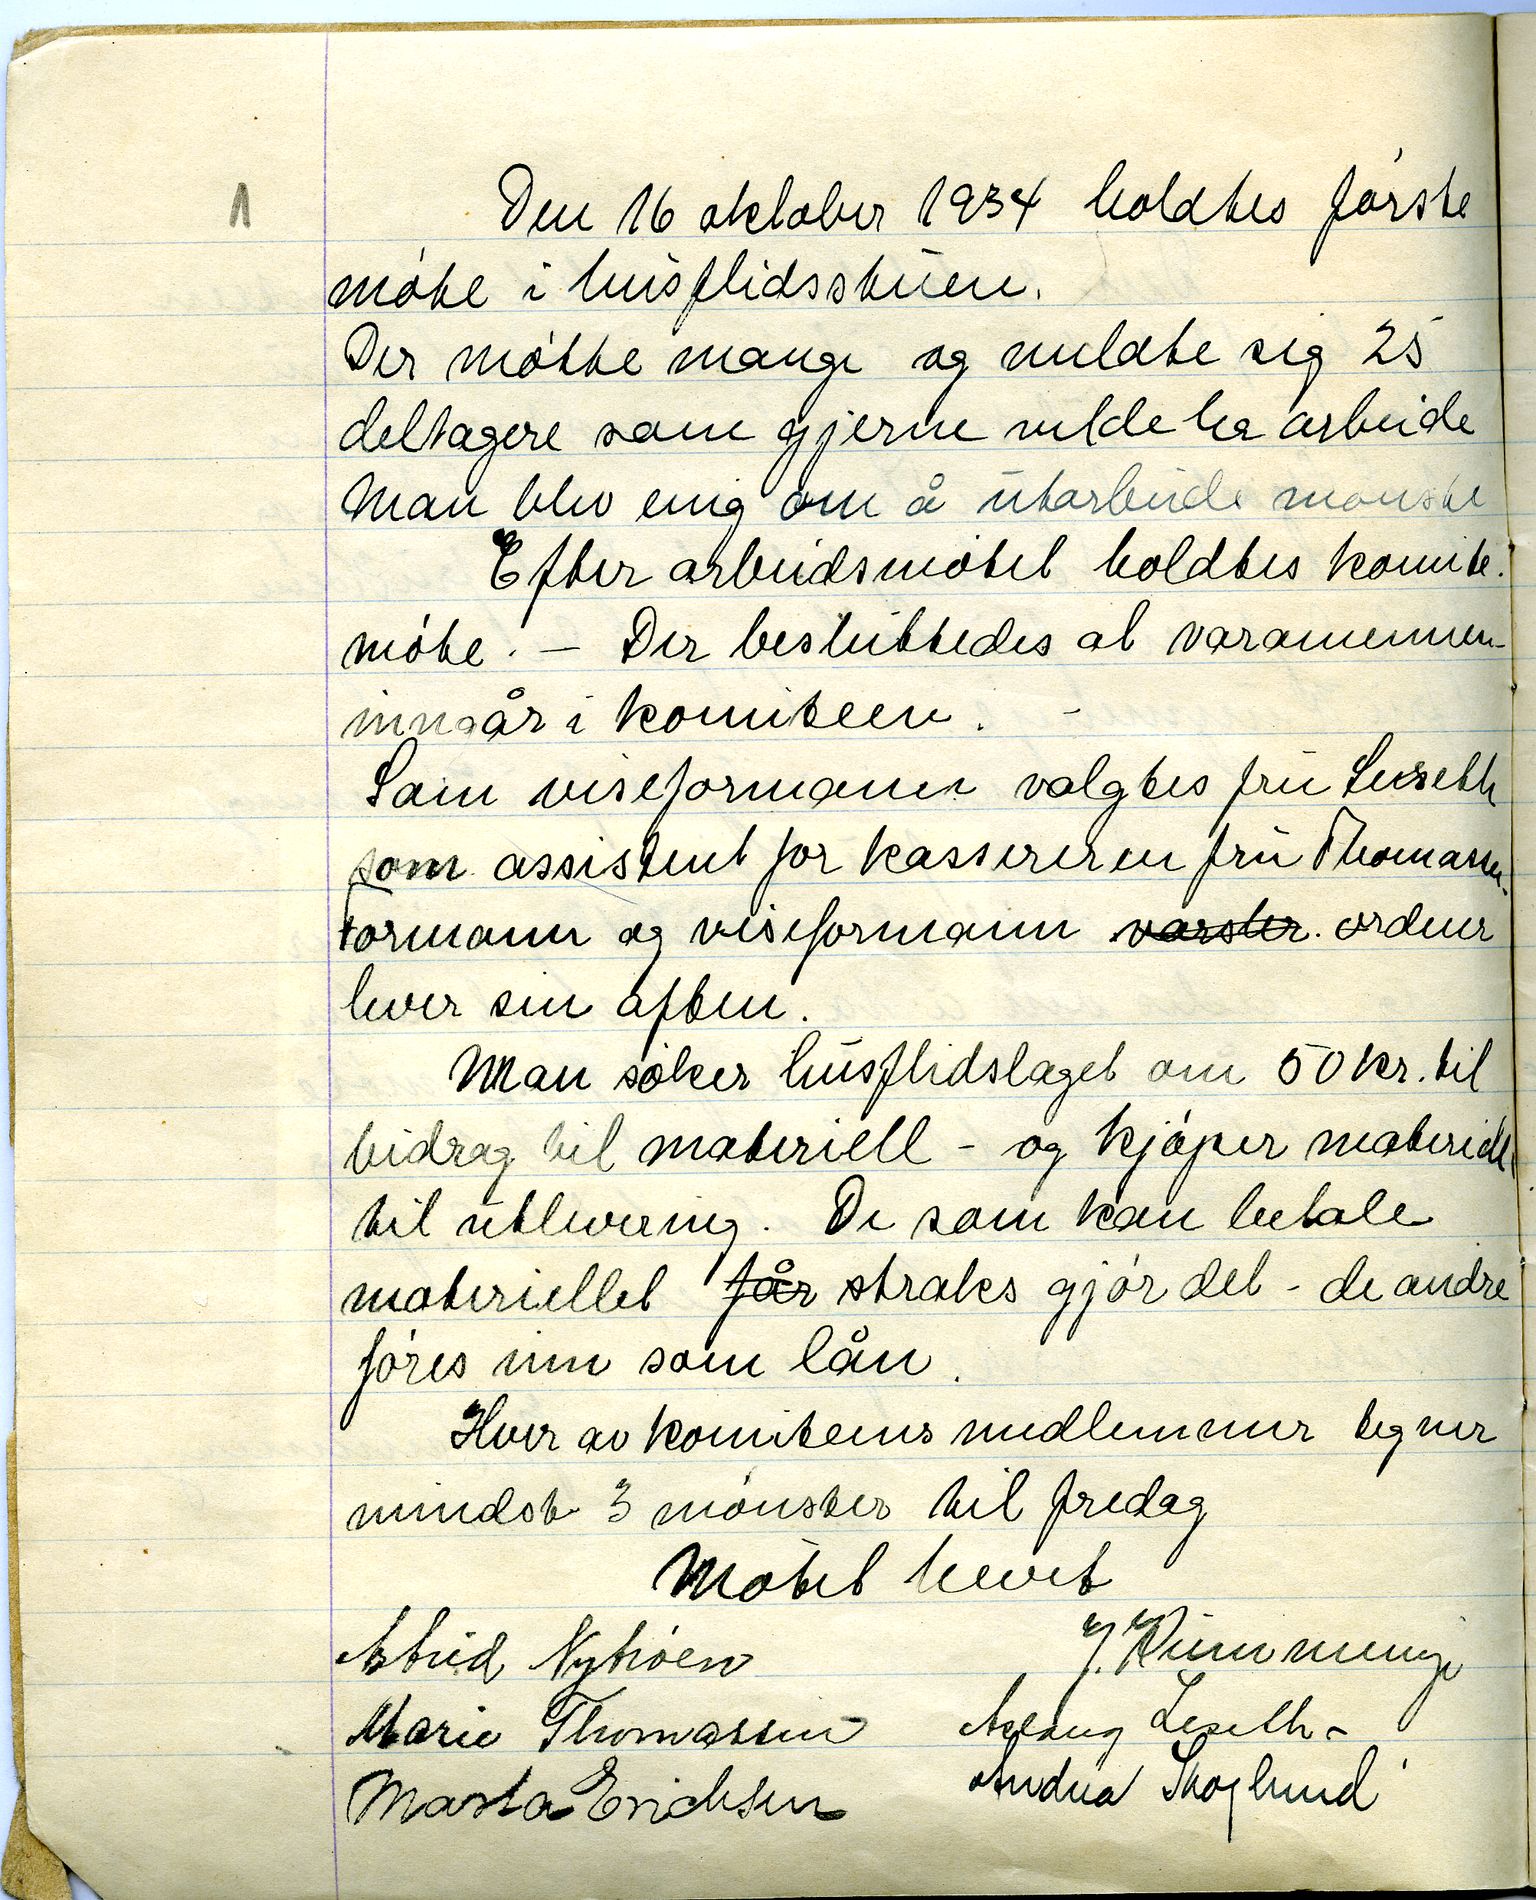 1
Den 16 oktober 1934 holdtes første
møte i husflidsstuen.
Der møtte mange og meldte sig 25
deltagere som gjerne vilde ha arbeide
Man blev enig om å utarbeide mønste
Efter arbeidsmøtet holdtes komite.
møte. – Der besluttedes at varamennen-
inngår i komiteen. -
Som viseformann valgtes fru Lerseth
som assistent for kassereren fru Thomassen.
formann og viseformann varsler. ordner
hver sin aften.
Man søker husflidslaget om 50 kr. til
bidrag til materiell - og kjøper materiell
til utlevering. De som kan betale
materiellet får straks gjør det - de andre
føres inn som lån.
Hver av komiteens medlemmer tegner
mindst 3 mønster til fredag
Møtet hevet
Astrid Nytrøen
Marie Thomassen Aslaug Leseth -
Marta Erichsen Andrea Skoglund